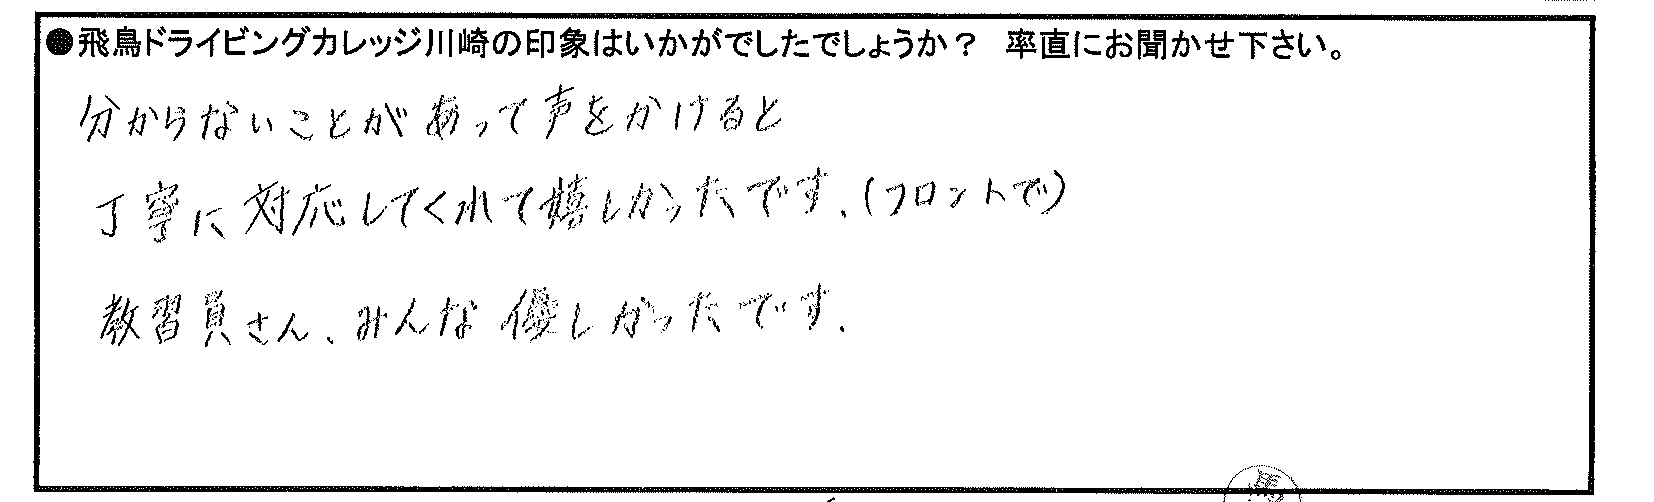 ●飛鳥ドライビングカレッジ川崎の印象はいかがでしたでしょうか？　率直にお聞かせ下さい。
分からないことがあって声をかけると
丁寧に対応してくれて嬉しかったです。(フロントで)
教習員さん、みんな優しかったです。